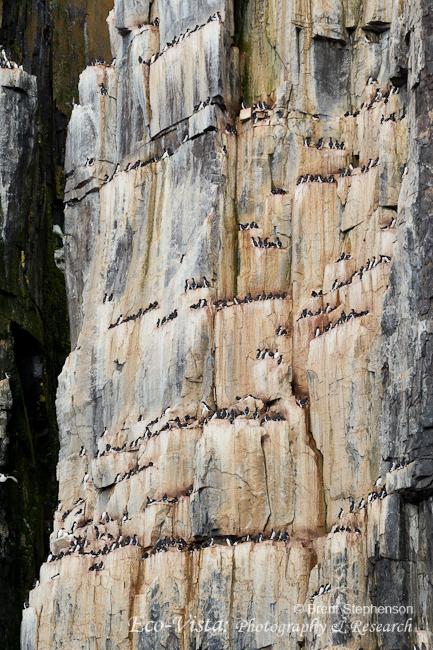 © Brent Stephenson
Eco-Vista: Photography & Research